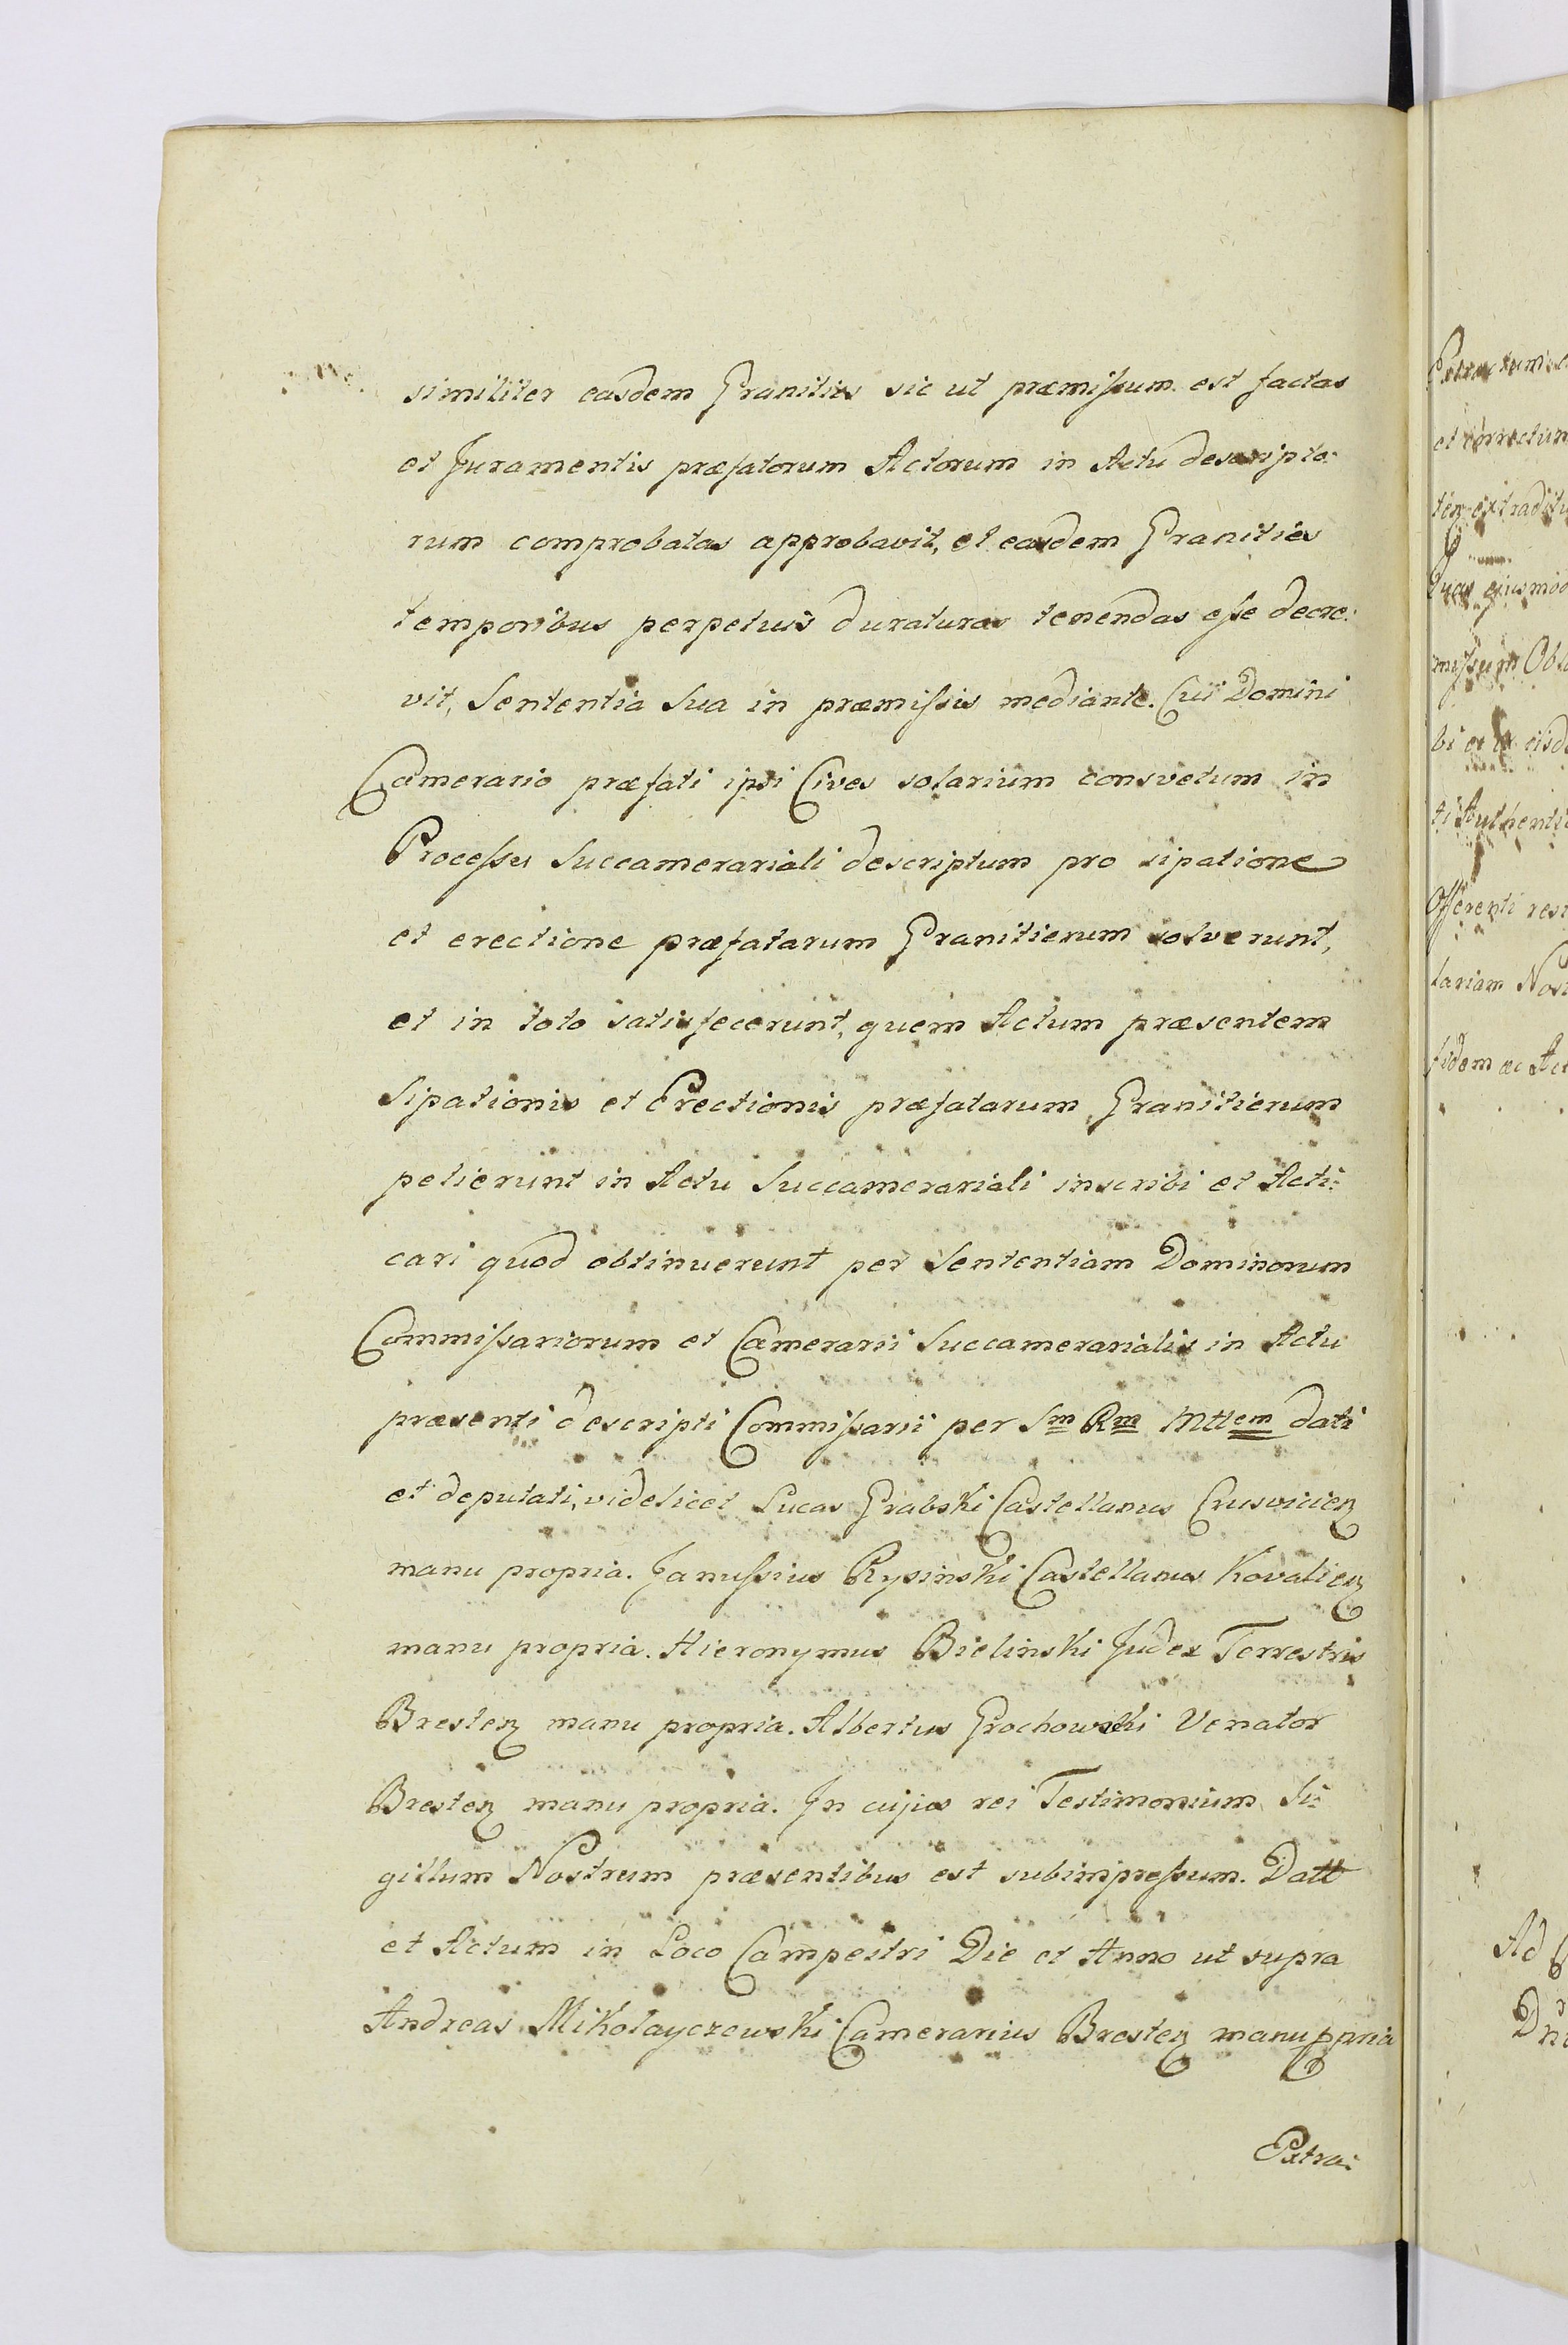 similiter easdem Granities sic ut præmißum est factas
et Juramentis præfatorum Actorum in Actu descripto:
rum comprobatas approbavit, et easdem Granities
temporibus perpetuis duraturas tenendas eße decre:
vit, Sententia Sua in præmißis mediante. Cui Domini
Camerario præfati ipsi Cives solarium consvetum in
Proceßes Succamerariali descriptum pro sipatione
et erectione præfatarum Granitierum solverunt,
et in toto satisfecerunt, quem Actum præsentem
Sipationis et Erectionis præfatarum Granitierum
petierunt in Actu Succamerariali inscribi et Acti:
cari quod obtinuerunt per Sententiam Dominorum
Commißariorum et Camerarii Succamerarialis in Actu
præsenti descripti Commißarii per Sm Rm Mttem dati
et deputati, videlicet Lucas Grabski Castellanus Crusvicien
manu propria. Janußius Rysinski Castellanus Kovalien
manu propria. Hieronymus Bielinski Judex Terrestris
Bresten manu propria. Albertus Grochowski Venator
Bresten manu propria. In cujus rei Testimonium Si:
gillum Nostrum præsentibus est subimpreßum. Datt
et Actum in Loco Campestri Die et Anno ut supra
Andreas Mikołayczewski Camerarius Bresten manu ppria
Extra:
et correctum
fidem ac Act
Ad